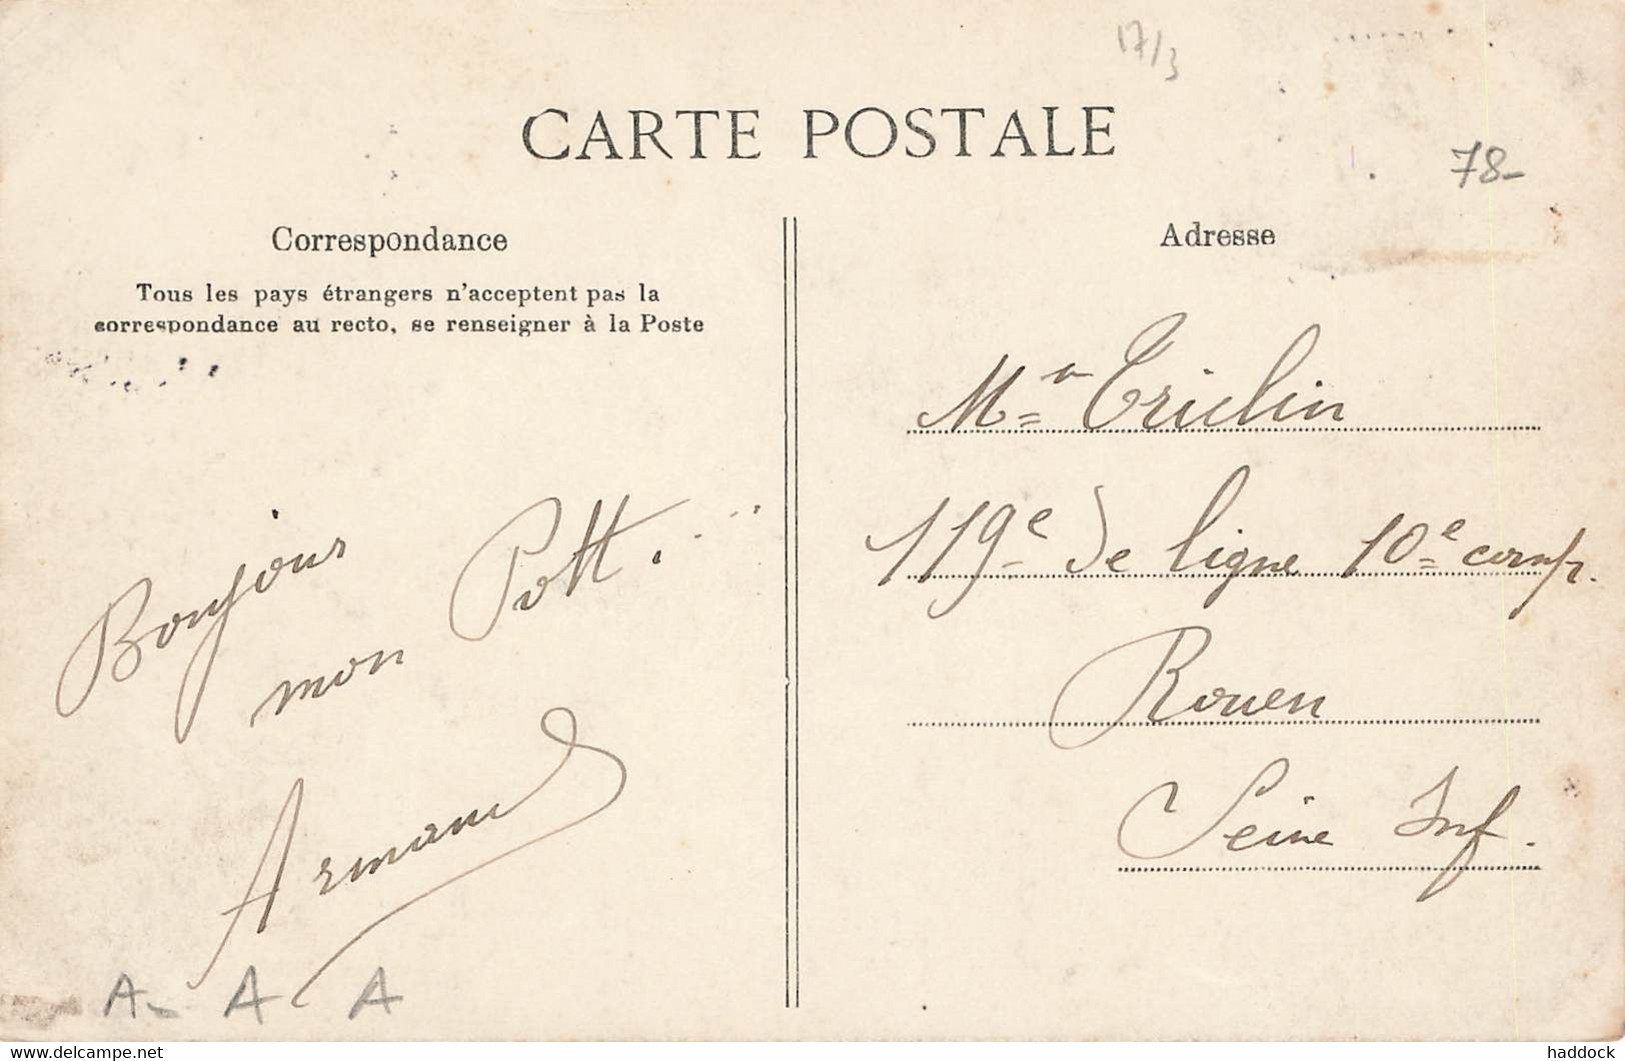 17/3
CARTE POSTALE
78-
Correspondance
Tous les pays étrangers n'acceptent pas la
correspondance au recto, se renseigner à la Poste
Bonjour
mon Pott...
Armand
A- A A
Adresse
Mr Triclin
119e de ligne 10e comp.
Rouen
Seine Inf.
www.delcampe.net
haddock